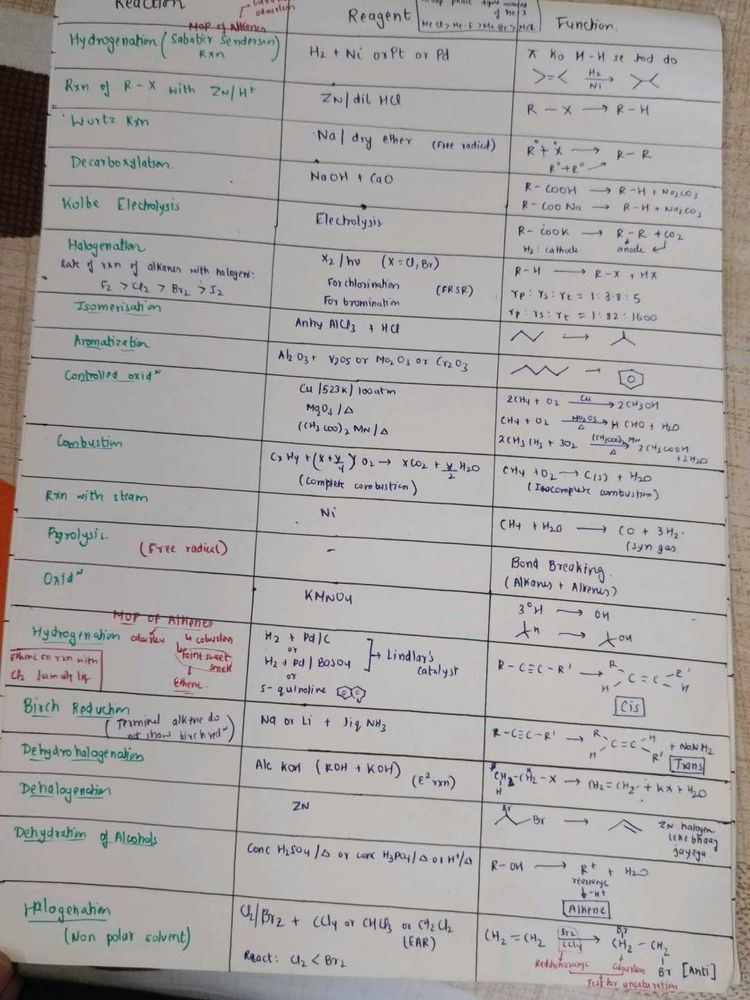 Reaction
Reagent
Function.
MOP of Alkanes
Hydrogenation (Sabatir Senderson Rxn)
H2 + Ni or Pt or Pd
π Ko H-H se tod do
H2
Ni
Rxn of R-X with ZN/H+
ZN/dil HCl
R-X → R-H
Wurtz Rxn
Na/dry ether (free radical)
R° + X° → R-R
R°+R°
Decarboxylation.
NaOH + CaO
R-COOH → R-H + Na2CO3
R-COONa → R-H + Na2CO3
Kolbe Electrolysis
Electrolysis
R-COOK → R-R + CO2
H2: cathode anode
Halogenation
Rate of rxn of alkanes with halogens:
F2 > Cl2 > Br2 > I2
X2/hν (X = Cl, Br)
For chlorination
For bromination
(FRSR)
R-H → R-X + HX
rp : rs : rt = 1 : 3.8 : 5
rp : rs : rt = 1 : 82 : 1600
Isomerisation
Anhy AlCl3 + HCl
Aromatization
Al2O3 + V2O5 or Mo2O3 or Cr2O3
Controlled oxidⁿ
Cu/523K/100atm
MgO3/Δ
((CH3COO)2MN/Δ
2CH4 + O2 Cu → 2CH3OH
CH4 + O2 Mo2O3 Δ → HCHO + H2O
2CH3CH3 + 3O2 (CH3COO)2Mn Δ → 2CH3COOH + 2H2O
Combustion
CxHy + (x+y/4)O2 → xCO2 + y/2 H2O
(Complete combustion)
CH4 + O2 → C(s) + H2O
(Incomplete combustion)
Rxn with steam
Ni
CH4 + H2O → CO + 3H2.
(Syn gas
Pyrolysis.
(Free radical)
-
Bond Breaking.
(Alkanes + Alkenes)
Oxidⁿ
KMNO4
3°H → OH
H → OH
MOP of Alkenes
Hydrogenation odourless
colourless
Faint sweet smell
Ethene.
Ethene on rxn with
Cl2
H2 + Pd/C
or
H2 + Pd/BaSO4
or
S-quinoline
Lindlar's catalyst
R-C≡C-R' →
R R'
C=C
H H
Cis
Birch Reduction
(Terminal alkene do not show birch redⁿ)
Na or Li + liq NH3
R-C≡C-R' →
R H
C=C
H R'
+ NaNH2
Trans
Dehydrohalogenation
Alc KOH (ROH + KOH) (E² rxn)
CH2-CH2-X → CH2=CH2 + KX + H2O
H
Dehalogenation
ZN
Br
Br
ZN halogen
leke bhaag
jayega
Dehydration of Alcohols
Conc H2SO4/Δ or conc H3PO4/Δ or H+/Δ
R-OH → R+ + H2O
rearrange
-H+
Alkene
Halogenation
(Non polar solvent)
Cl2/Br2 + CCl4 or CHCl3 or CH2Cl2
(EAR)
React: Cl2 < Br2
CH2=CH2 Br2 CCl4 → CH2-CH2
Br
Br [Anti]
Test for unsaturation